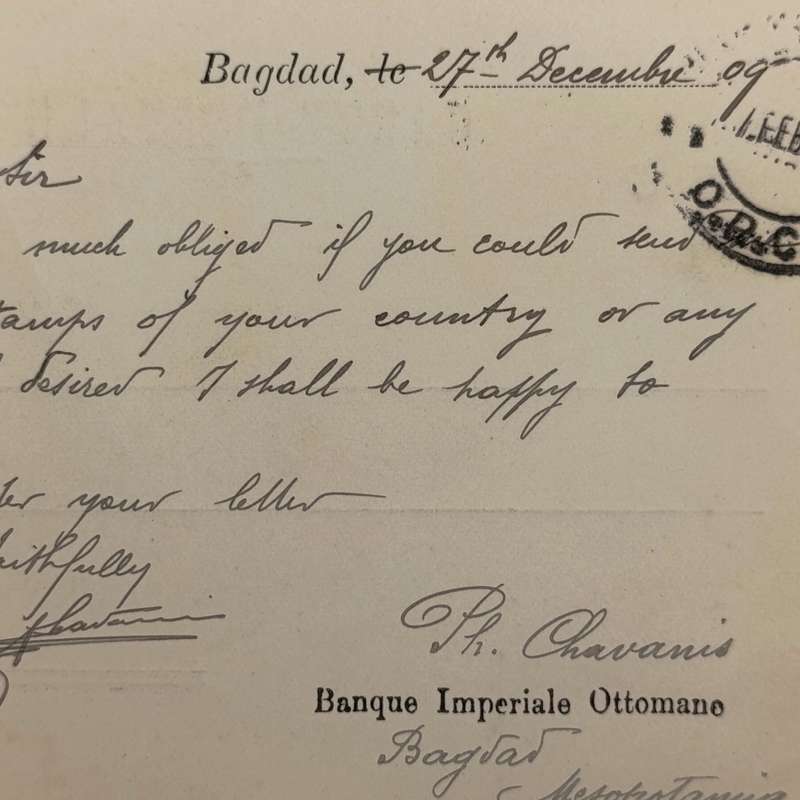 Bagdad, le 27th Decembre 09
Sir
1 FEB
much obliged if you could send
O.D.C
tamps of your country or any
desired I shall be happy to
ter your letter
aithfully
Ph. Chavanis
Banque Imperiale Ottomane
Bagdad
Mesopotamia